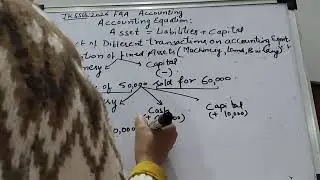 JKSSB 2026 FAA Accounting
Accounting Equation:
Asset = Liabilities + Capital
t of Different Transactions on accounting Equat
tion of Fixed Assets (Machinery, Land, Building)
nery Capital
(-)
of 50,000 sold for 60,000
Cash Capital
(+ 000) (+10,000)
0,000